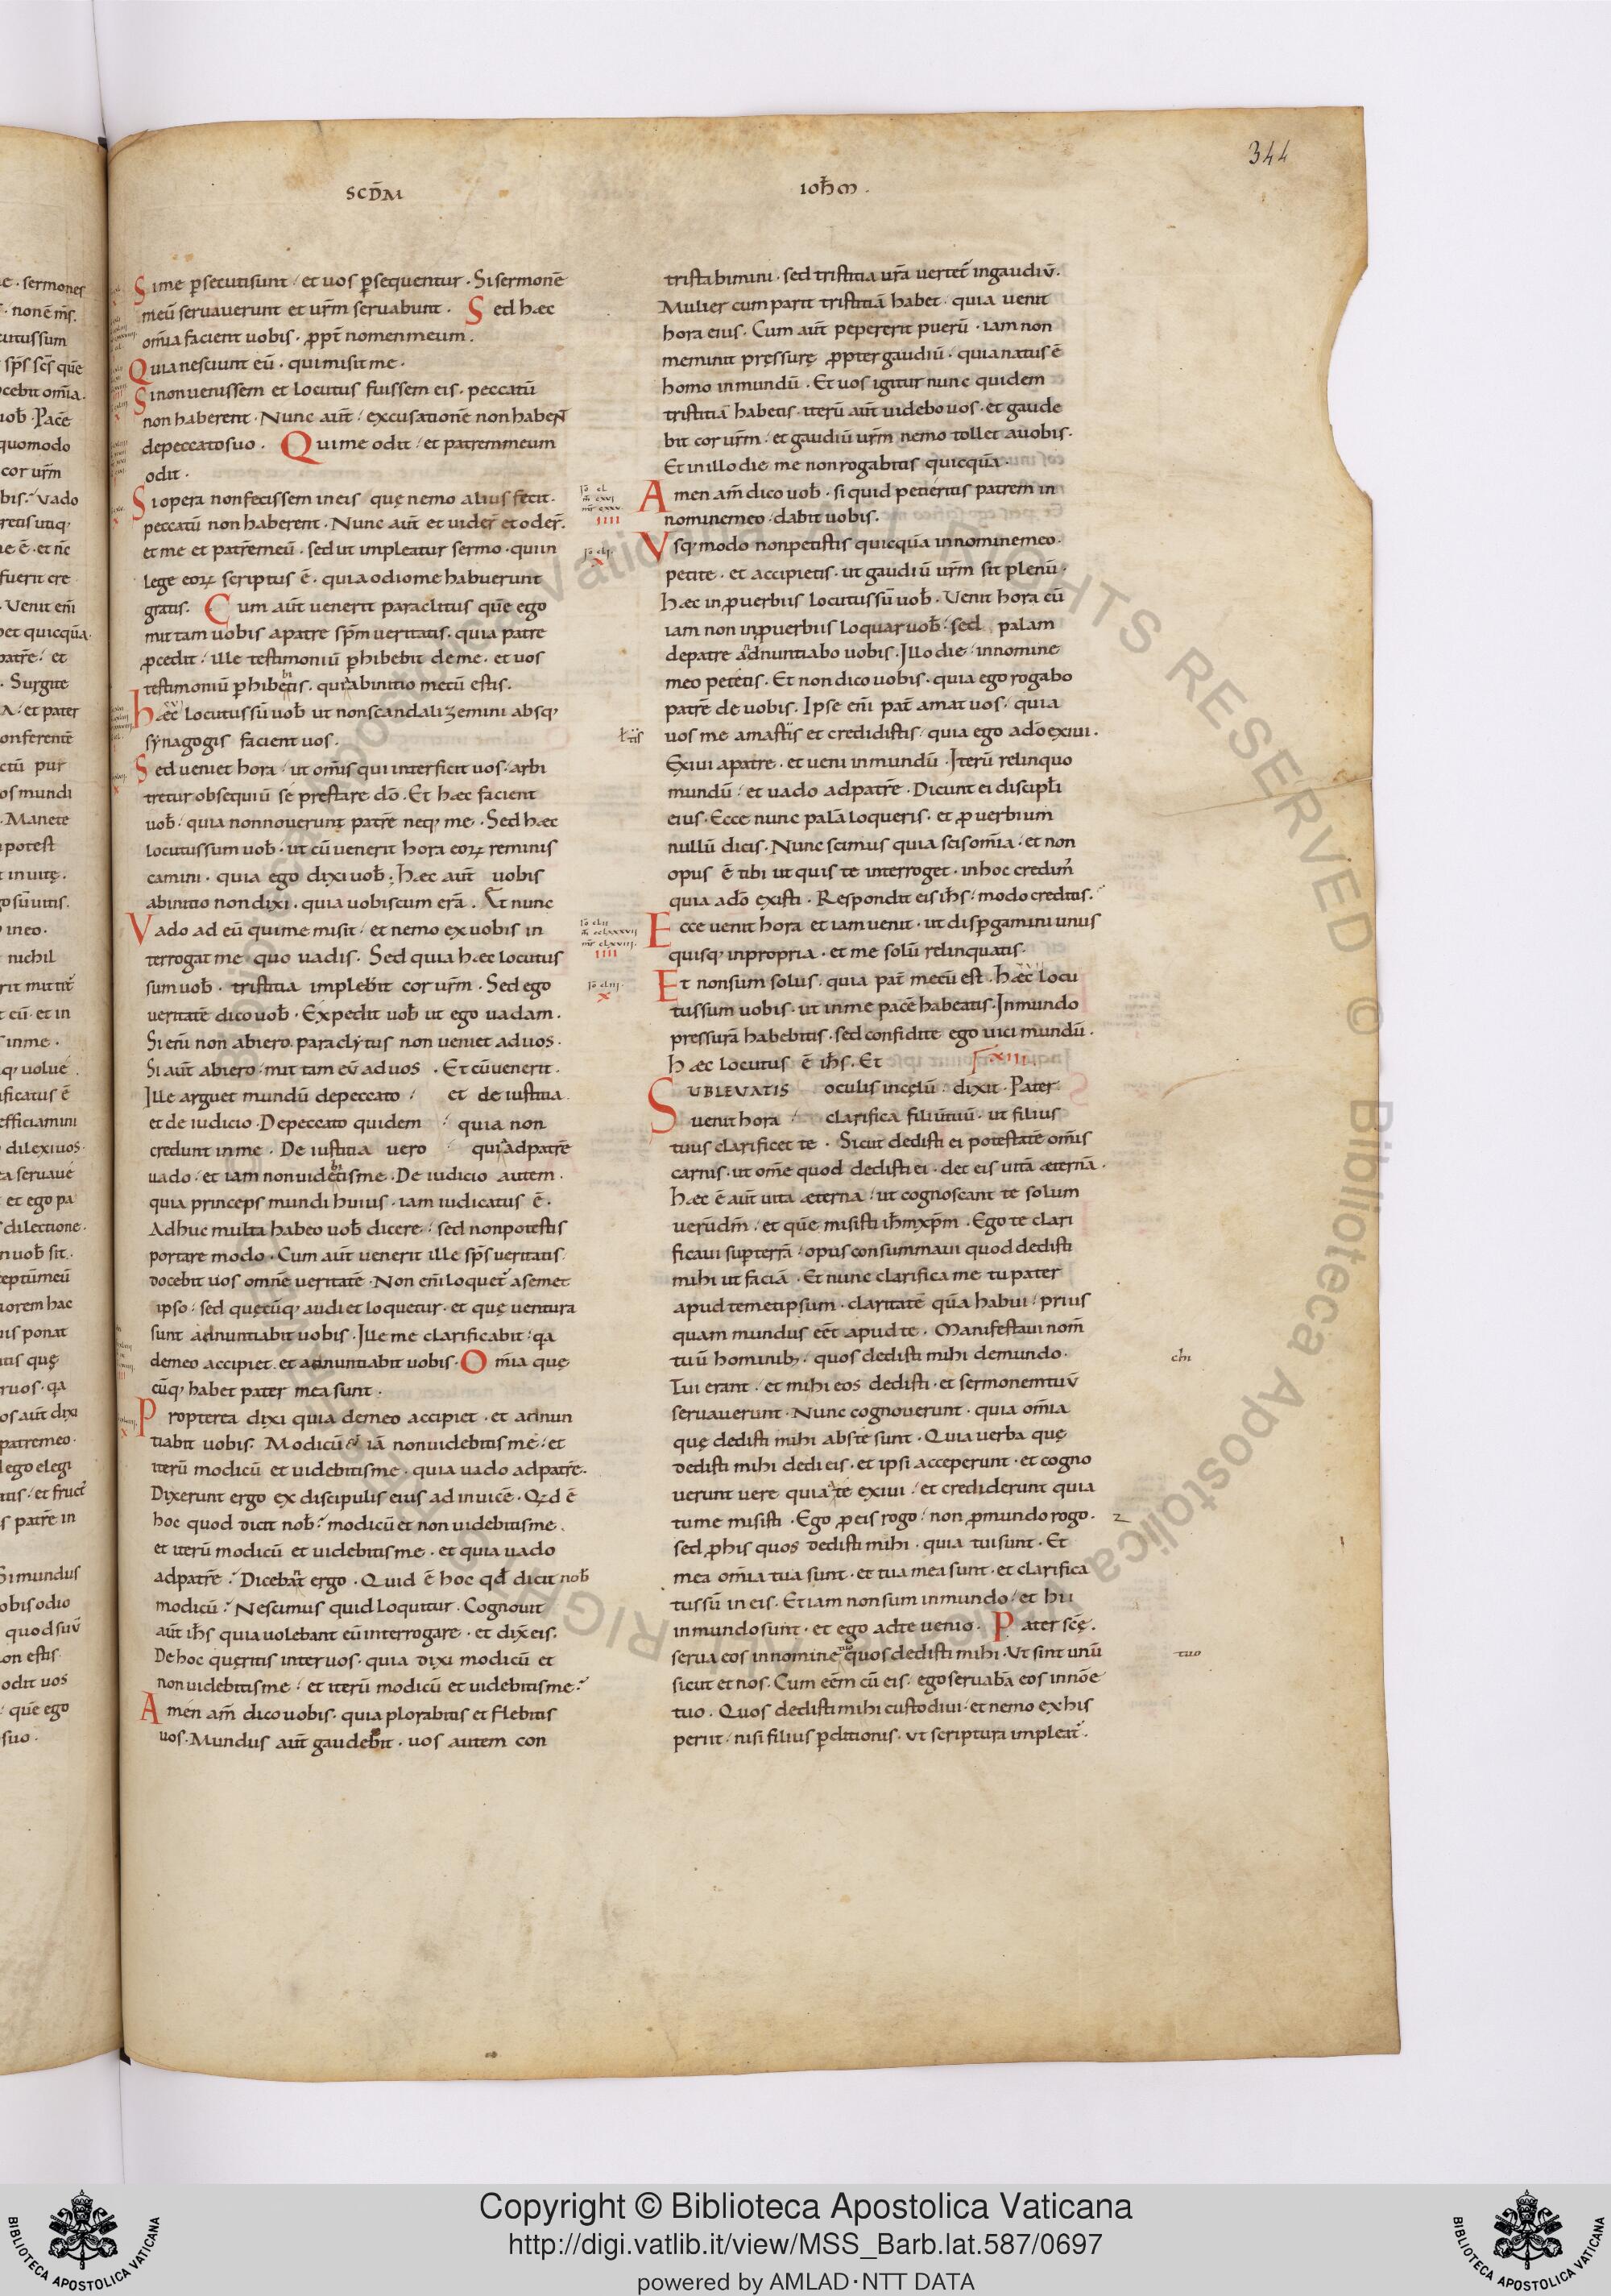 344
SCD̄M
IOH̄M .
Si me p̄secuti sunt / et vos p̄sequentur . Si sermonē
meū servaverunt et ur̄m servabunt . Sed hæc
om̄ia facient vobis . ꝓpt̄ nomen meum .
Quia nesciunt eū . qui misit me .
Si non venissem et locutus fuissem eis . peccatū
non haberent . Nunc aūt / excusationē non habeN̄
de peccato suo . Qui me odit / et patrem meum
odit .
Si opera non fecissem in eis quę nemo alius fecit .
peccatū non haberent . Nunc aūt et uider̄ et oder̄ .
et me et patrē meū . sed ut impleatur sermo . qui in
lege eoꝝ scriptus ē . quia odio me habuerunt
gratis . Cum aūt venerit paraclitus quē ego
mittam vobis a patre sp̄m veritatis . quia patre
ꝓcedit / ille testimoniū p̄hibebit de me . et vos
testimoniū p̄hibetis . quia ab initio mecū estis .
Hæc locutus sū vob̄ ut non scandalizemini absq;
synagogis facient vos .
Sed veniet hora / ut om̄is qui interficit vos / arbi
tretur obsequiū se prestare dō . Et hæc facient
vob̄ / quia non noverunt patrē neq; me . Sed hæc
locutus sum vob̄ . ut cū venerit hora eoꝝ reminis
camini . quia ego dixi vob̄ . Hæc aūt vobis
ab initio non dixi . quia vobiscum erā . At nunc
Vado ad eū qui me misit / et nemo ex vobis in
terrogat me . quo vadis . Sed quia hæc locutus
sum vob̄ . tristitia implebit cor ur̄m . Sed ego
veritatē dico vob̄ . Expedit vob̄ ut ego vadam .
Si eni̅ non abiero . paraclytus non veniet ad vos .
Si aūt abiero . mittam eū ad vos . Et cū venerit .
Ille arguet mundū de peccato / et de iustitia
et de iudicio . De peccato quidem / quia non
credunt in me . De iustitia vero quia ad patrē
vado / et iam non videtis me . De iudicio autem .
quia princeps mundi huius . iam iudicatus ē .
Adhuc multa habeo vob̄ dicere / sed non potestis
portare modo . Cum aūt venerit ille sp̄s veritatis
docebit vos omnē veritatē . Non eni̅ loquet̄ a semet
ipso / sed quęcūq; audiet loquetur . et quę ventura
sunt adnuntiabit vobis . Ille me clarificabit / qa
de meo accipiet . et adnuntiabit vobis . Om̄ia quę
cūq; habet pater mea sunt .
Propterea dixi quia de meo accipiet . et adnun
tiabit vobis . Modicū & iā non videbitis me / et
iterū modicū et videbitis me . quia vado ad patrē .
Dixerunt ergo ex discipulis eius ad invicē . Qd ē
hoc quod dicit nob̄ ? modicū et non videbitis me .
et iterū modicū et videbitis me . et quia vado
ad patrē ? Dicebāt ergo . Quid ē hoc qd̄ dicit nob̄
modicū ? Nescimus quid loquitur . Cognovit
aūt ih̄s quia volebant eū interrogare . et dix̄ eis .
De hoc quęritis inter vos . quia dixi modicū et
non videbitis me / et iterū modicū et videbitis me ?
Amen am̄ dico vobis . quia plorabitis et flebitis
vos . Mundus aūt gaudebit . vos autem con
tristabimini . sed tristitia ur̄a vertet̄ in gaudiū .
Mulier cum parit tristitiā habet . quia venit
hora eius . Cum aūt pepererit puerū . iam non
meminit pressurę ꝓpter gaudiū . quia natus ē
homo in mundū . Et vos igitur nunc quidem
tristitiā habetis . iterū aūt videbo vos . et gaude
bit cor ur̄m / et gaudiū ur̄m nemo tollet a vobis .
Et in illo die me non rogabitis quicquā .
Amen am̄ dico vob̄ . si quid petieritis patrem in
nomine meo / dabit vobis .
Vsq; modo non petistis quicquā in nomine meo .
petite . et accipietis . ut gaudiū ur̄m sit plenū .
Hæc in ꝓverbiis locutus sū vob̄ . Venit hora cū
iam non in ꝓverbiis loquar vob̄ / sed palam
de patre adnuntiabo vobis . Illo die / in nomine
meo petetis . Et non dico vobis . quia ego rogabo
patrē de vobis . Ipse eni̅ pat̄ amat vos / quia
vos me amastis et credidistis / quia ego a dō exivi .
Exivi a patre . et veni in mundū . Iterū relinquo
mundū / et vado ad patrē . Dicunt ei discipl̄i
eius . Ecce nunc palā loqueris . et ꝓverbium
nullū dicis . Nunc scimus quia scis om̄ia / et non
opus ē tibi ut quis te interroget . in hoc credim̄
quia a dō existi . Respondit eis ih̄s / modo creditis .
Ecce venit hora et iam venit . ut disp̄gamini unus
quisq; in propria . et me solū relinquatis .
Et non sum solus . quia pat̄ mecū est . Hæc locu
tus sum vobis . ut in me pacē habeatis . In mundo
pressurā habebitis . sed confidite ego vici mundū .
Hæc locutus ē ih̄s . Et
SUBLEVATIS oculis in cęlū . dixit . Pater
venit hora / clarifica filiū tuū . ut filius
tuus clarificet te . Sicut dedisti ei potestatē om̄is
carnis . ut om̄e quod dedisti ei . det eis vitā æternā .
Hæc ē aūt vita æterna / ut cognoscant te solum
verū dm̄ / et quē misisti ih̄m xp̄m . Ego te clari
ficavi sup̄ terrā / opus consummavi quod dedisti
mihi ut faciā . Et nunc clarifica me tu pater
apud temetipsum . claritatē quā habui / prius
quam mundus eēt apud te . Manifestavi nom̄
tuū hominib; . quos dedisti mihi de mundo .
Tui erant / et mihi eos dedisti . et sermonem tuū
servaverunt . Nunc cognoverunt . quia om̄ia
quę dedisti mihi abs te sunt . Quia verba quę
dedisti mihi dedi eis . et ipsi acceperunt . et cogno
verunt vere quia a te exivi / et crediderunt quia
tu me misisti . Ego ꝓ eis rogo / non ꝓ mundo rogo .
sed ꝓ his quos dedisti mihi . quia tui sunt . Et
mea om̄ia tua sunt . et tua mea sunt . et clarifica
tus sū in eis . Et iam non sum in mundo / et hii
in mundo sunt . et ego ad te venio . Pater scē .
serva eos in nomine tuo quos dedisti mihi . Ut sint unū
sicut et nos . Cum eēm cū eis . ego servabā eos in nōe
tuo . Quos dedisti mihi custodivi / et nemo ex his
periit / nisi filius p̄ditionis . ut scriptura impleat̄ .
tuo
Copyright © Biblioteca Apostolica Vaticana
http://digi.vatlib.it/view/MSS_Barb.lat.587/0697
powered by AMLAD·NTT DATA
BIBLIOTECA APOSTOLICA VATICANA
BIBLIOTECA APOSTOLICA VATICANA